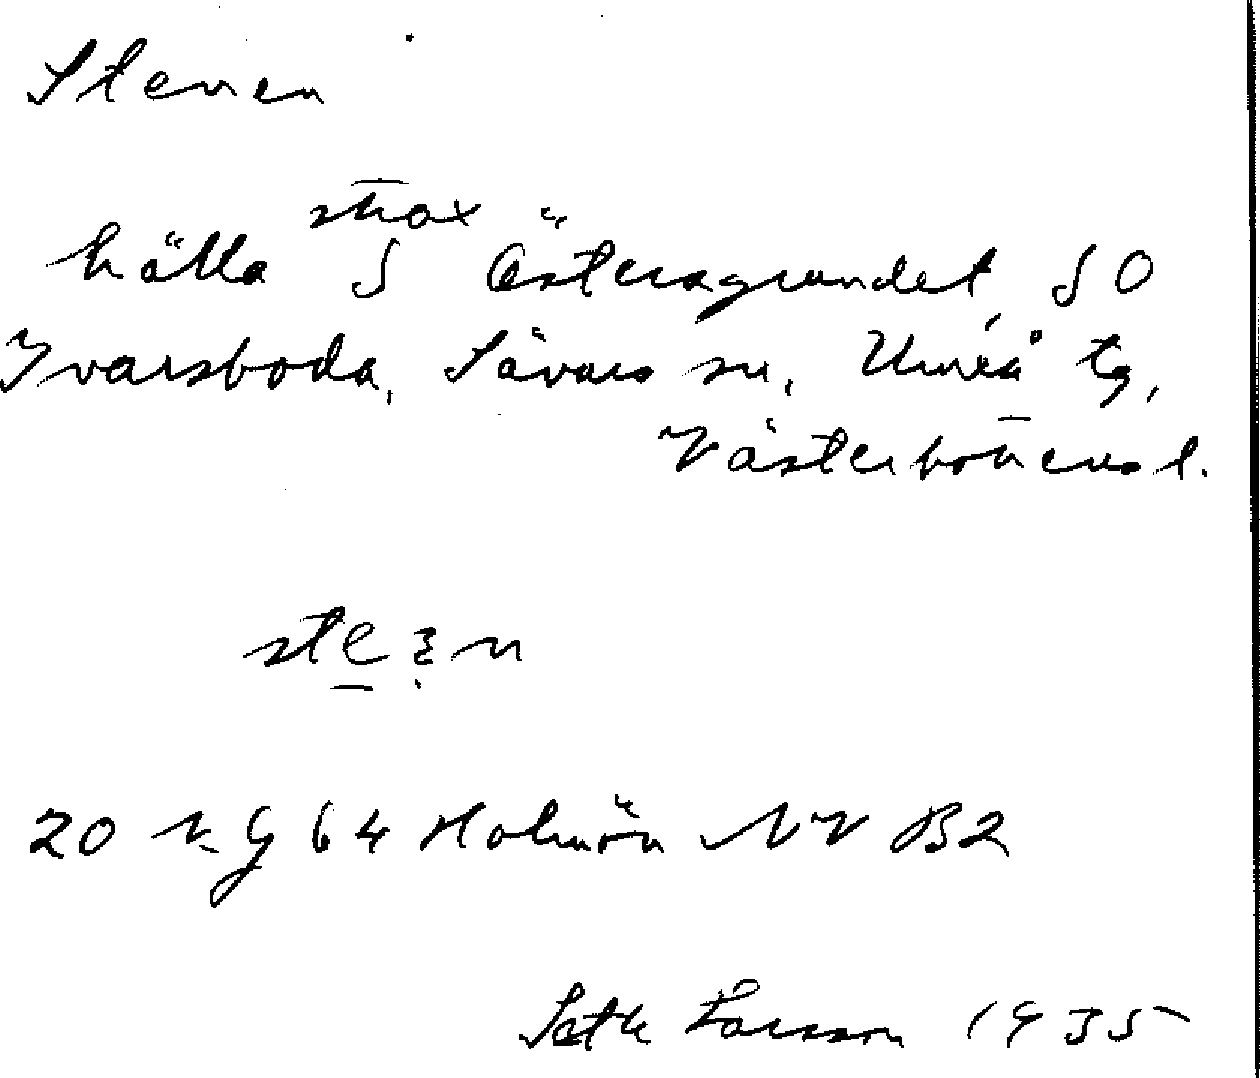 Stenen
strax
hälla S Östersgrundet, SO
Ivarsboda, Sävars sn, Umeå tg,
Västerbottens l.
20 K 9 g 64 Holmön NV B2
Seth Larsson 1935